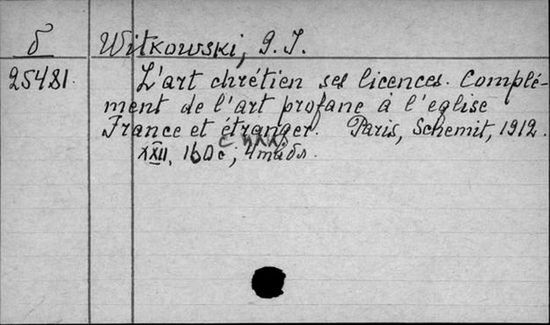 б Witkowski, G. J.
25481. L'art chrétien ses licences. Complé-
ment de l'art profane à l'eglise
France et étranger. Paris, Schemit, 1912.
XXII, 160 с; 4 табл.
с илл.